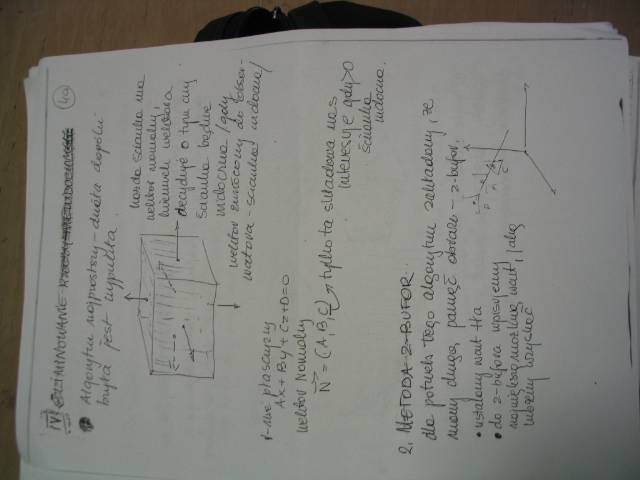 IV ELIMINOWANIE
4a
Algorytm najprostszy - dwuta dopóki
bryła jest wypukła
każda ścianka ma
wektor normalny,
kierunek wektora
decyduje o tym czy
ścianka będzie
widoczna / gdy
wektor zwrócony do obser-
watora - ścianka widoczna /
r-nie płaszczyzny
Ax + By + Cz + D = 0
wektor normalny
N = (A, B, C) → tylko ta składowa nas
interesuje gdy > 0
ścianka
widoczna.
2. METODA Z-BUFOR.
dla potrzeb tego algorytmu zakładamy, że
mamy drugą pamięć obrazu - z-bufor.
• ustalamy wart tła
• do z-bufora wpisujemy
największą możliwą wart, jaką
możemy uzyskać